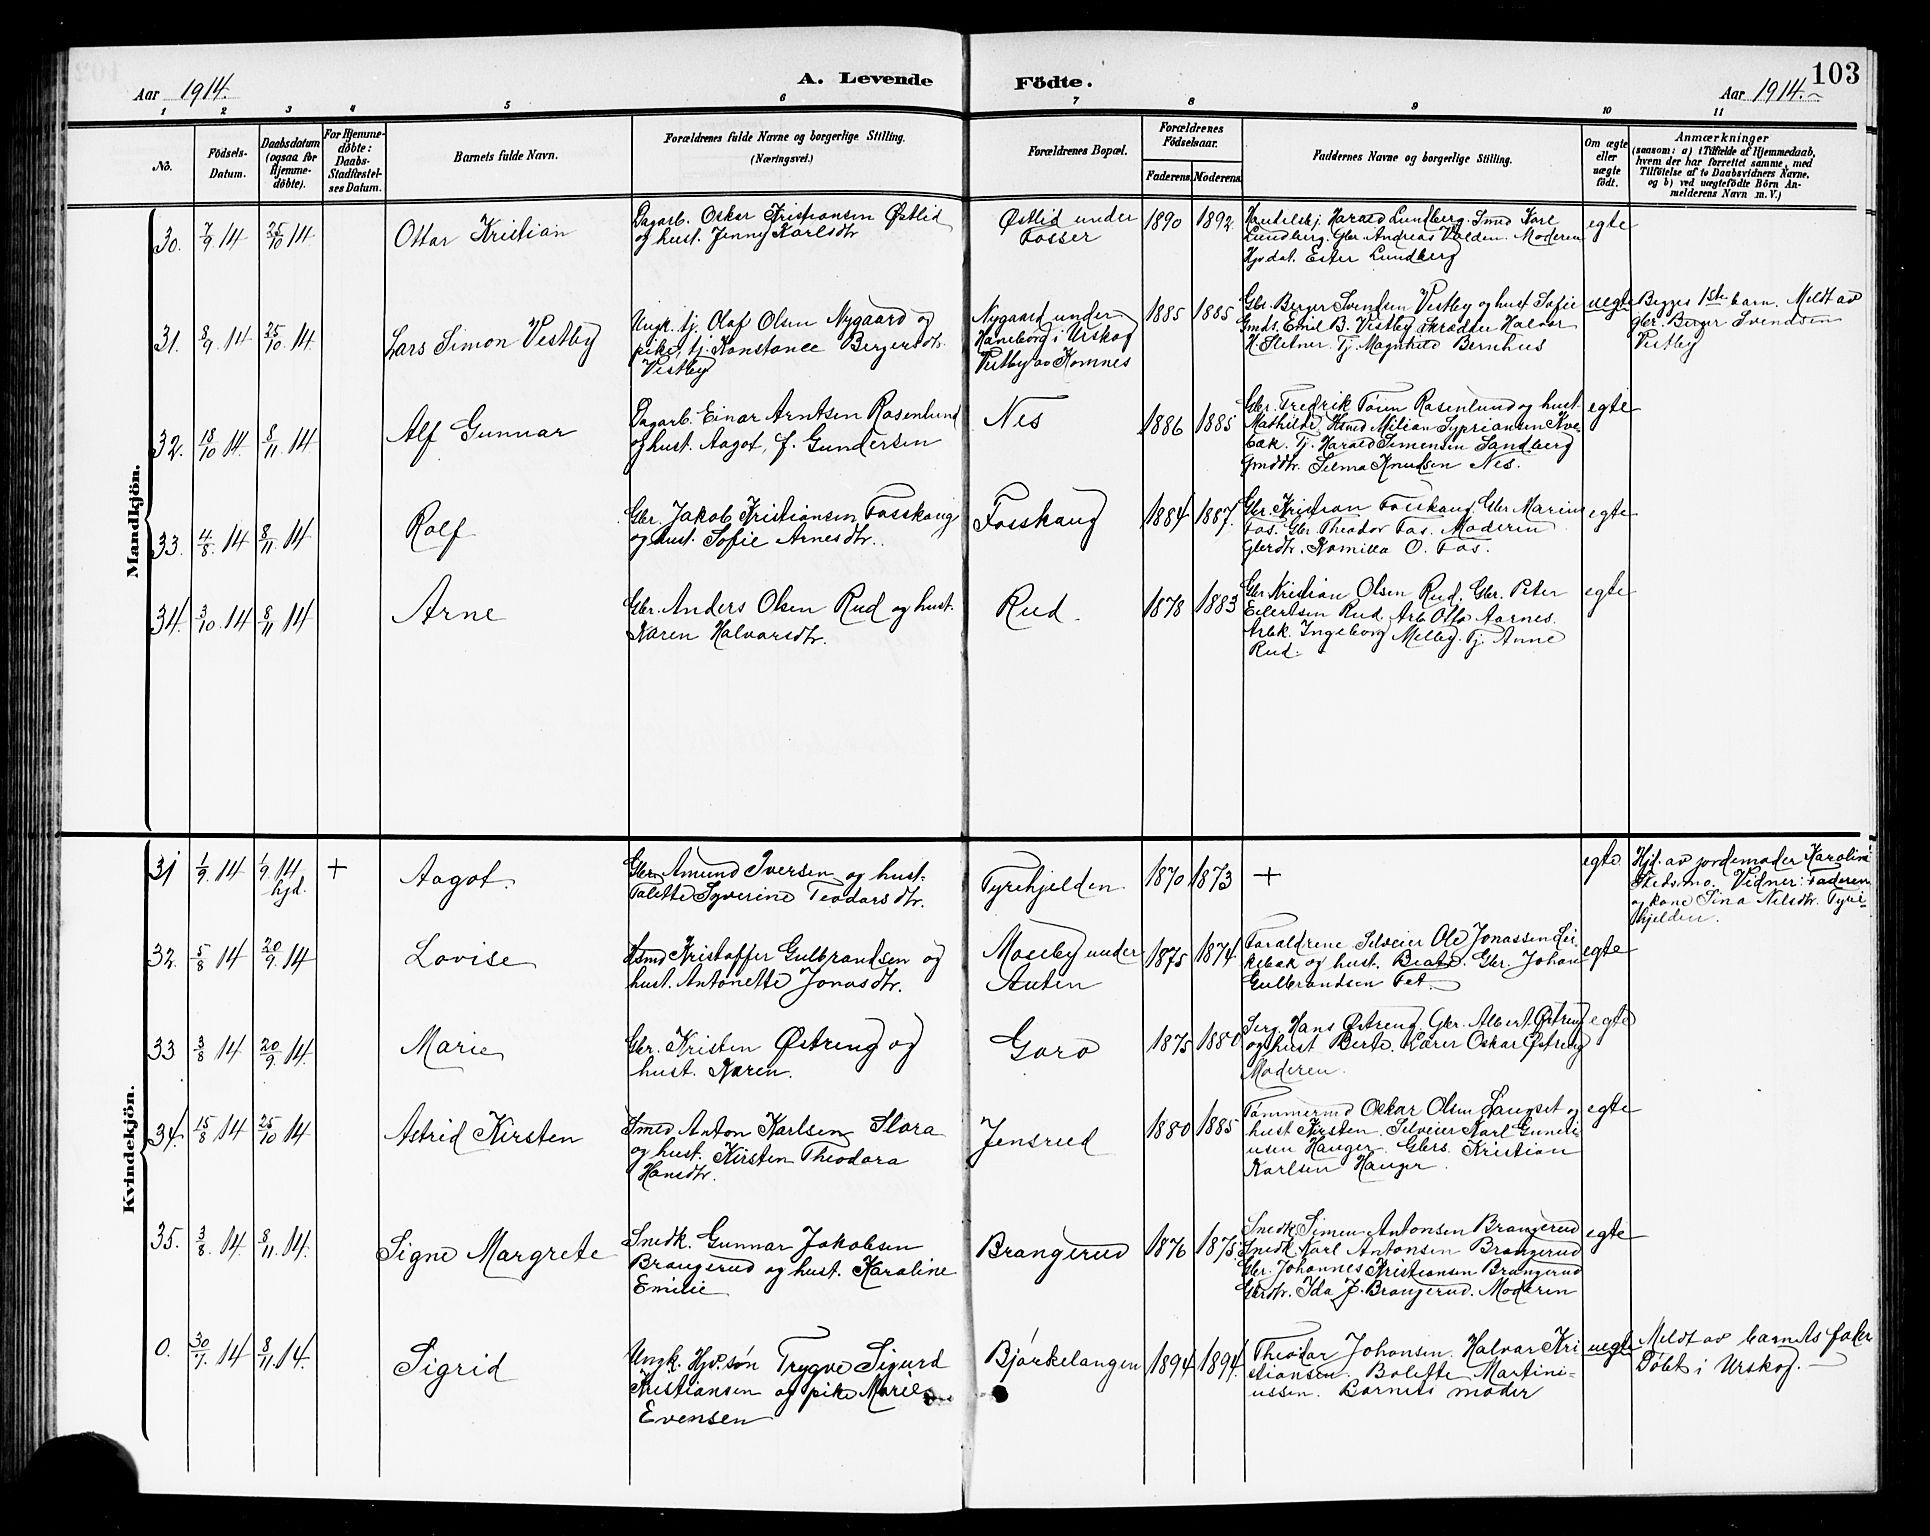 103
Aar 1914.
A. Levende
Födte.
Aar 1914.
1 2 3 4 5 6 7 8 9 10 11
No.
Födsels-
Datum.
Daabsdatum
(ogsaa for
Hjemme-
döbte).
For Hjemme-
döbte:
Daabs-
Stadfæstel-
ses Datum.
Barnets fulde Navn.
Forældrenes fulde Navne og borgerlige Stilling.
(Næringsvei.)
Forældrenes Bopæl.
Forældrenes
Födselsaar.
Faderens. Moderens.
Faddernes Navne og borgerlige Stilling.
Om ægte
eller
uægte
födt.
Anmærkninger
(saasom: a) i Tilfælde af Hjemmedaab,
hvem der har forrettet samme, med
Tilföielse af to Daabsvidners Navne,
og b) ved uægtefödte Börn An-
melderens Navn m. V.)
Mandkjön.
30. 7/9 14 25/10 14
Ottar Kristian
Dagarb. Oskar Kristiansen Østlid
og hust. Jenny Karlsdtr
Østlid under
Fosser
1890 1892
Handelsbj. Harald Lundberg. Smed Karl
Lundberg. Gbr. Andreas Valden. Moderen
Hjv.dat. Ester Lundberg
egte
31. 8/9 14 25/10 14.
Lars Simon Vestby
Ungk. tj. Olaf Olsen Nygaard og
pike, tj. Konstance Bergersdtr.
Vestby
Nygaard under
Haneborg i Urskog
Vestby av Komnes
1885 1885
Gbr. Berger Svendsen Vestby og hust Sofie
Gmds. Emil B. Vestby Skrædder Halvor
H. Sletner. Tj. Magnhild Bernhus
uegte
Begges 1ste barn. Meldt av
gbr. Berger Svendsen
Vestby
32. 18/10 14. 8/11 14
Alf Gunnar
Dagarb. Einar Arntsen Rosenlund
og hust. Aagot, f. Gundersen
Nes
1886 1885
Gbr. Fredrik Rosenlund og hust.
Mathilde, Hsmd Milian Sypriansen Kve-
bak. Tj. Harald Simensen Sandberg
Gmddtr. Selma Knudsen Nes.
egte
33. 4/8 14 8/11 14
Rolf
Gbr. Jakob Kristiansen Fosskaug
og hust. Sofie Arnesdtr.
Fosskaug
1884 1887.
Gbr. Kristian Fosskaug. Gbr. Marius
Fos. Gbr Theodor Fos. Moderen
Gbrdtr. Kamilla O. Fos.
egte
34. 3/10 14 8/11 14
Arne
Gbr. Anders Olsen Rud og hust.
Karen Halvorsdtr.
Rud.
1878 1883
Gbr. Kristian Olsen Rud, Gbr. Peter
Eilertsen Rud. Arb. Otto Aarnes.
Arbk. Ingeborg Melby. Tj. Anne
Rud.
egte
Kvindekjön.
31 1/9 14 1/9 14
hjd.
+
Aagot.
Gbr. Amund Iversen og hust.
Talette Syverine Teodorsdtr.
Tyrihjelden
1870 1873
+
egte.
Hjd. av jordemoder Karoline
Skedsmo. Vidner: Faderen
og kone Sina Nilsdtr. Tyri-
hjelden.
32. 5/8 14 20/9 14
Lovise
Hsmd Kristoffer Gulbrandsen og
hust. Antonette Jonasdtr.
Moseby under
Auten
1875 1874
Foraldrene. Selveier Ole Jonassen Lir-
kebak og hust. Beate. Gbr. Johan
Gulbrandsen Fet.
egte
33 3/8 14 20/9 14.
Marie
Gbr. Kristen Østreng og
hust. Karen.
Garo
1875 1880
Serg. Hans Østreng. Gbr. Albert Østreng
og hust Berte. Lærer Oskar Østreng
Moderen.
egte
34. 15/8 14 25/10 14
Astrid Kirsten
Smed Anton Karlsen Slora
og hust. Kirsten Theodora
Hansdtr.
Jensrud
1880 1885
Tømmermd Oskar Olsen Langset og
hust Kirsten. Selveier Karl Guneri-
usen Hanger. Gbrs. Kristian
Karlsen Hanger.
egte
35. 3/8 14. 8/11 14.
Signe Margrete
Snedk. Gunnar Jakobsen
Brangerud og hust. Karoline
Emilie
Brangerud
1876 1875.
Snedk Simen Antonsen Brangerud
Snedk. Karl Antonsen Brangerud
Gbr. Johannes Kristiansen Brangerud
Gbrdtr. Ida J. Brangerud. Moderen
egte
0. 30/7 14 8/11 14.
Sigrid
Ungk. Hjv.søn Trygve Sigurd
Kristiansen og pike Marie
Evensen
Bjørkelangen
1894 1894.
Theodor Johansen. Halvar Kri-
stiansen. Bolette Martini-
ussen. Barnets moder
uegte
Meldt av barnets fader
Døbt i Urskog.